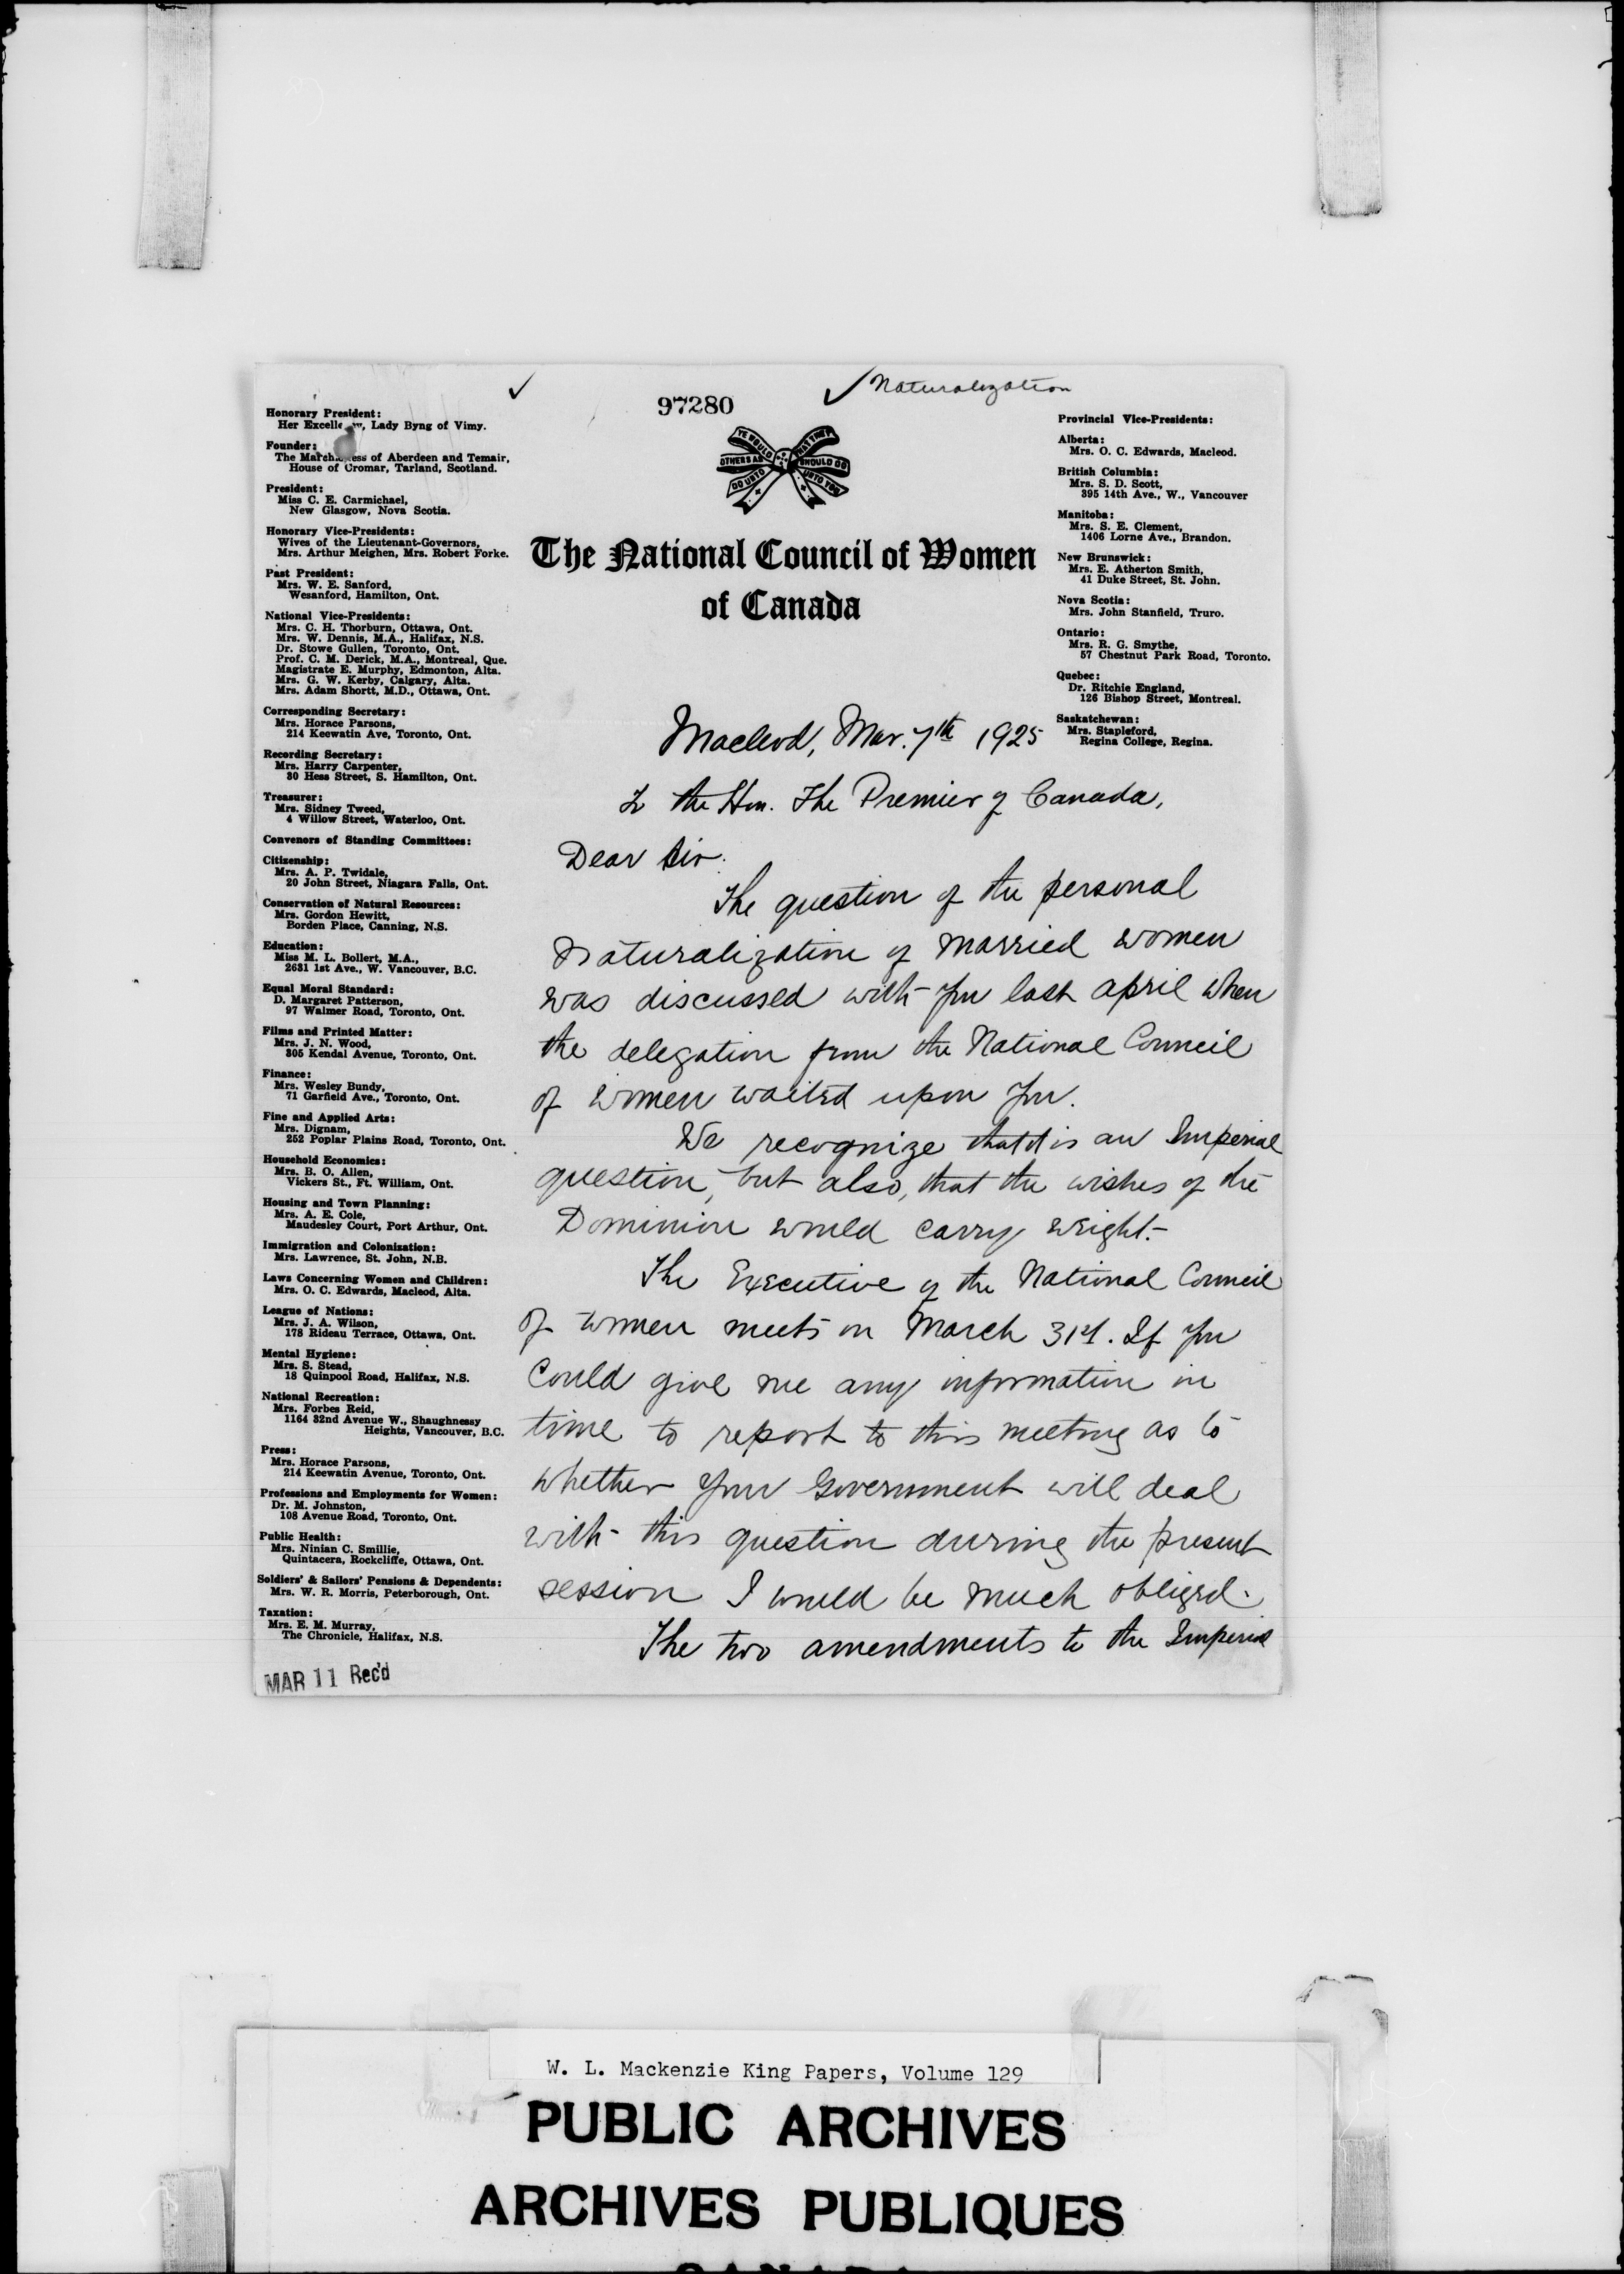 Naturalization
97280
Honorary President:
Her Excellency, Lady Byng of Vimy.
Founder:
The Marchioness of Aberdeen and Temair,
House of Cromar, Tarland, Scotland.
President:
Miss C. E. Carmichael,
New Glasgow, Nova Scotia.
Honorary Vice-Presidents:
Wives of the Lieutenant-Governors,
Mrs. Arthur Meighen, Mrs. Robert Forke.
Past President:
Mrs. W. E. Sanford,
Wesanford, Hamilton, Ont.
National Vice-Presidents:
Mrs. C. H. Thorburn, Ottawa, Ont.
Mrs. W. Dennis, M.A., Halifax, N.S.
Dr. Stowe Gullen, Toronto, Ont.
Prof. C. M. Derick, M.A., Montreal, Que.
Magistrate E. Murphy, Edmonton, Alta.
Mrs. G. W. Kerby, Calgary, Alta.
Mrs. Adam Shortt, M.D., Ottawa, Ont.
Corresponding Secretary:
Mrs. Horace Parsons,
214 Keewatin Ave, Toronto, Ont.
Recording Secretary:
Mrs. Harry Carpenter,
30 Hess Street, S. Hamilton, Ont.
Treasurer:
Mrs. Sidney Tweed,
4 Willow Street, Waterloo, Ont.
Convenors of Standing Committees:
Citizenship:
Mrs. A. P. Twidale,
20 John Street, Niagara Falls, Ont.
Conservation of Natural Resources:
Mrs. Gordon Hewitt,
Borden Place, Canning, N.S.
Education:
Miss M. L. Bollert, M.A.,
2631 1st Ave., W. Vancouver, B.C.
Equal Moral Standard:
D. Margaret Patterson,
97 Walmer Road, Toronto, Ont.
Films and Printed Matter:
Mrs. J. N. Wood,
305 Kendal Avenue, Toronto, Ont.
Finance:
Mrs. Wesley Bundy,
71 Garfield Ave., Toronto, Ont.
Fine and Applied Arts:
Mrs. Dignam,
252 Poplar Plains Road, Toronto, Ont.
Household Economics:
Mrs. B. O. Allen,
Vickers St., Ft. William, Ont.
Housing and Town Planning:
Mrs. A. E. Cole,
Maudesley Court, Port Arthur, Ont.
Immigration and Colonization:
Mrs. Lawrence, St. John, N.B.
Laws Concerning Women and Children:
Mrs. O. C. Edwards, Macleod, Alta.
League of Nations:
Mrs. J. A. Wilson,
178 Rideau Terrace, Ottawa, Ont.
Mental Hygiene:
Mrs. S. Stead,
18 Quinpool Road, Halifax, N.S.
National Recreation:
Mrs. Forbes Reid,
1164 32nd Avenue W., Shaughnessy
Heights, Vancouver, B.C.
Press:
Mrs. Horace Parsons,
214 Keewatin Avenue, Toronto, Ont.
Professions and Employments for Women:
Dr. M. Johnston,
108 Avenue Road, Toronto, Ont.
Public Health:
Mrs. Ninian C. Smillie,
Quintacera, Rockcliffe, Ottawa, Ont.
Soldiers' & Sailors' Pensions & Dependents:
Mrs. W. R. Morris, Peterborough, Ont.
Taxation:
Mrs. E. M. Murray,
The Chronicle, Halifax, N.S.
MAR 11 Rec'd
DO UNTO
OTHERS AS
YE WOULD
THAT THEY
SHOULD DO
UNTO YOU
The National Council of Women
of Canada
Provincial Vice-Presidents:
Alberta:
Mrs. O. C. Edwards, Macleod.
British Columbia:
Mrs. S. D. Scott,
395 14th Ave., W., Vancouver
Manitoba:
Mrs. S. E. Clement,
1406 Lorne Ave., Brandon.
New Brunswick:
Mrs. E. Atherton Smith,
41 Duke Street, St. John.
Nova Scotia:
Mrs. John Stanfield, Truro.
Ontario:
Mrs. R. G. Smythe,
57 Chestnut Park Road, Toronto.
Quebec:
Dr. Ritchie England,
126 Bishop Street, Montreal.
Saskatchewan:
Mrs. Stapleford,
Regina College, Regina.
Macleod, Mar. 7th 1925
To the Hon. The Premier of Canada,
Dear Sir.
The question of the personal
Naturalization of married women
was discussed with you last april when
the delegation from the National Council
of Women waited upon you.
We recognize that it is an Imperial
question, but also, that the wishes of the
Dominion would carry weight.
The Executive of the National Council
of Women meets on March 31st. If you
could give me any information in
time to report to this meeting as to
whether your Government will deal
with this question during the present
session I would be much obliged.
The two amendments to the Imperial
W. L. Mackenzie King Papers, Volume 129
PUBLIC ARCHIVES
ARCHIVES PUBLIQUES
CANADA